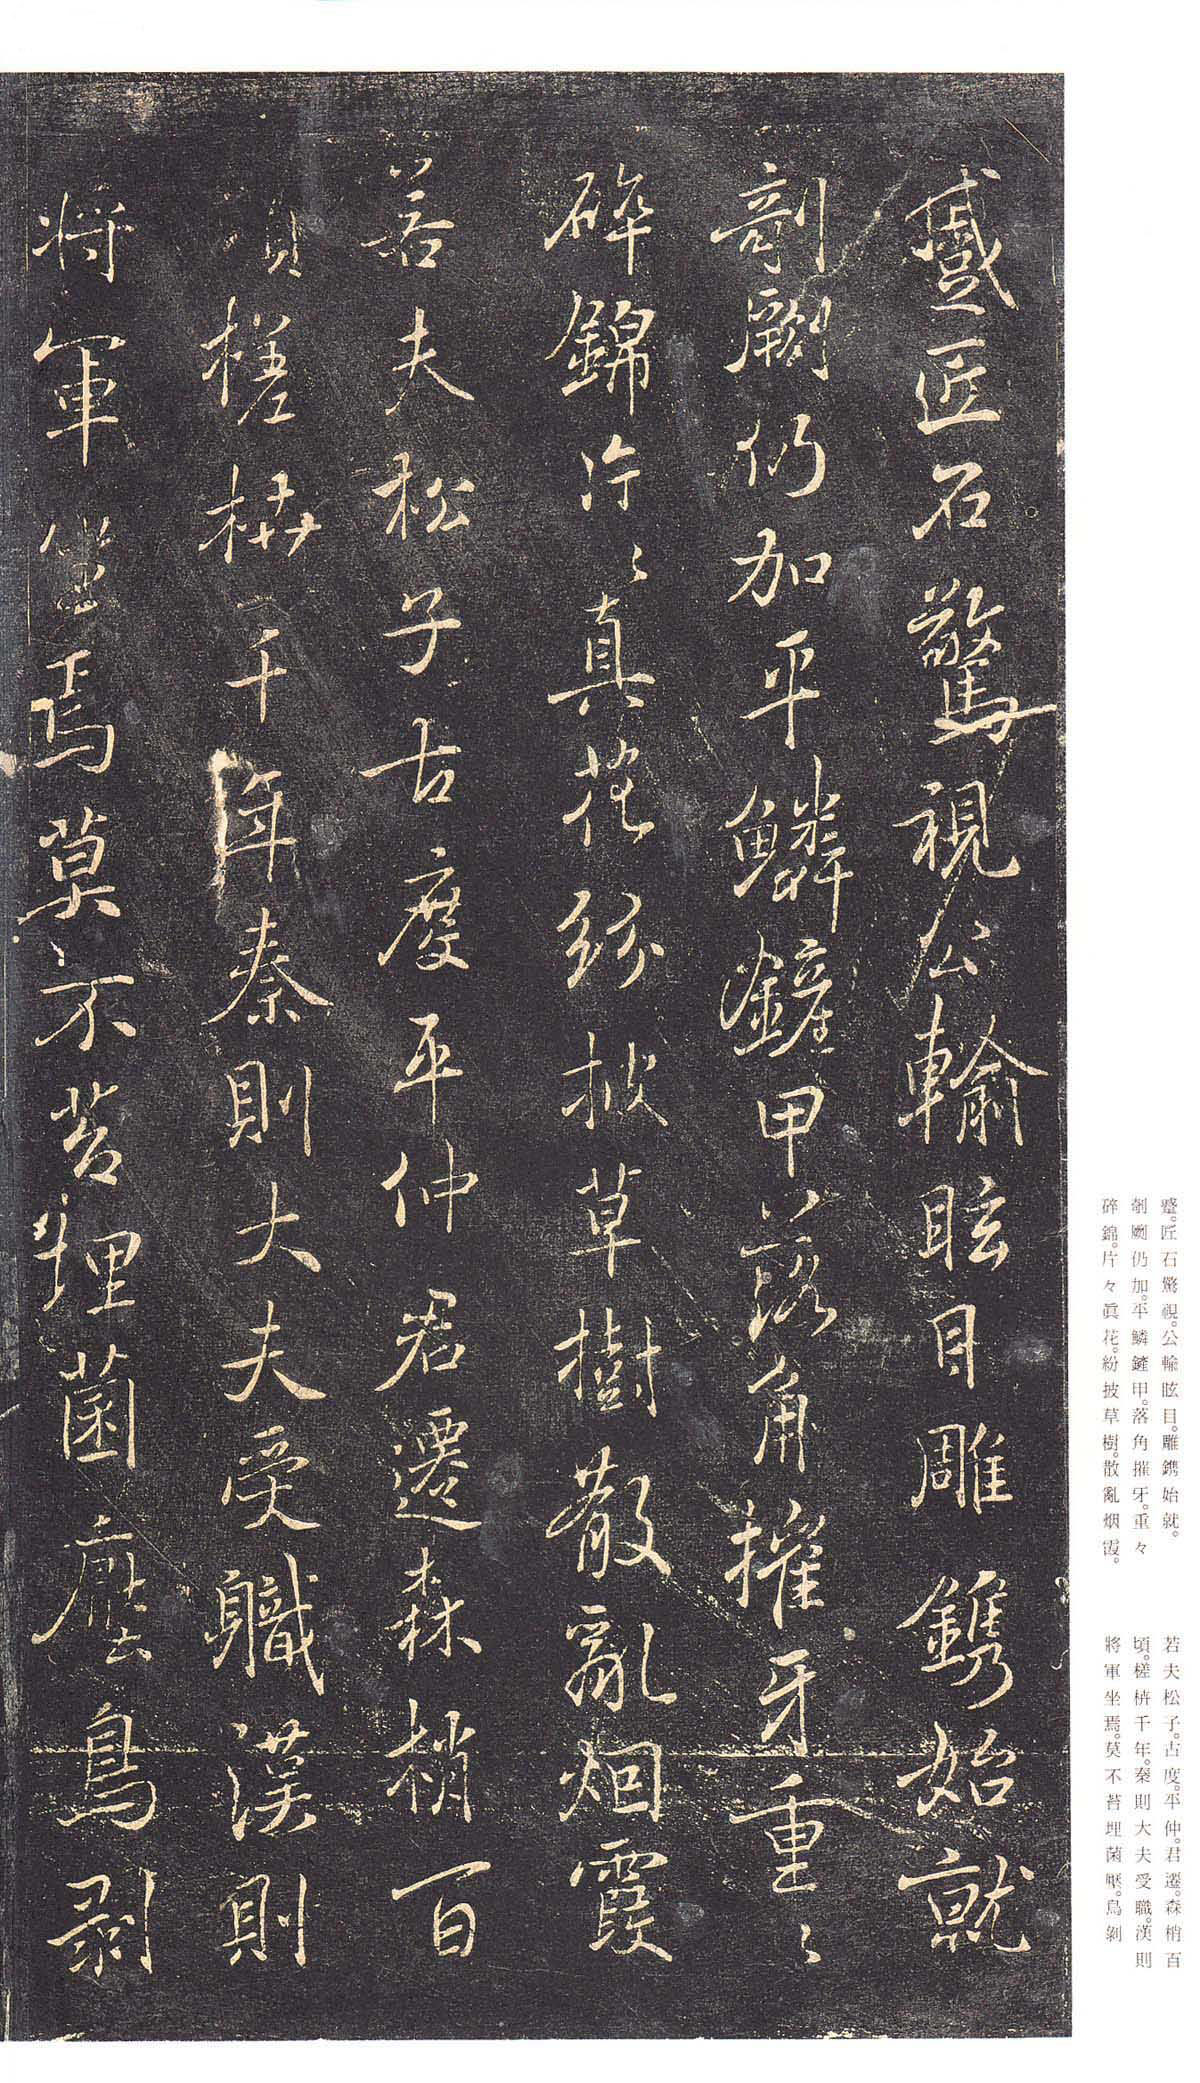 蹙。匠石驚視。公輸眩目。雕鐫始就。
剞劂仍加。平鱗鏟甲。落角摧牙。重々
碎錦。片々眞花。紛披草樹。散亂烟霞。
若夫松子。古度。平仲。君遷。森梢百
頃。槎枿千年。秦則大夫受職。漢則
將軍坐焉。莫不苔埋菌壓。鳥剝
蹙匠石驚視公輸眩目雕鐫始就
剞劂仍加平鱗鏟甲落角摧牙重々
碎錦片々真花紛披草樹散亂烟霞
若夫松子古度平仲君遷森梢百
頃槎枿千年秦則大夫受職漢則
将軍坐焉莫不苔埋菌壓鳥剥